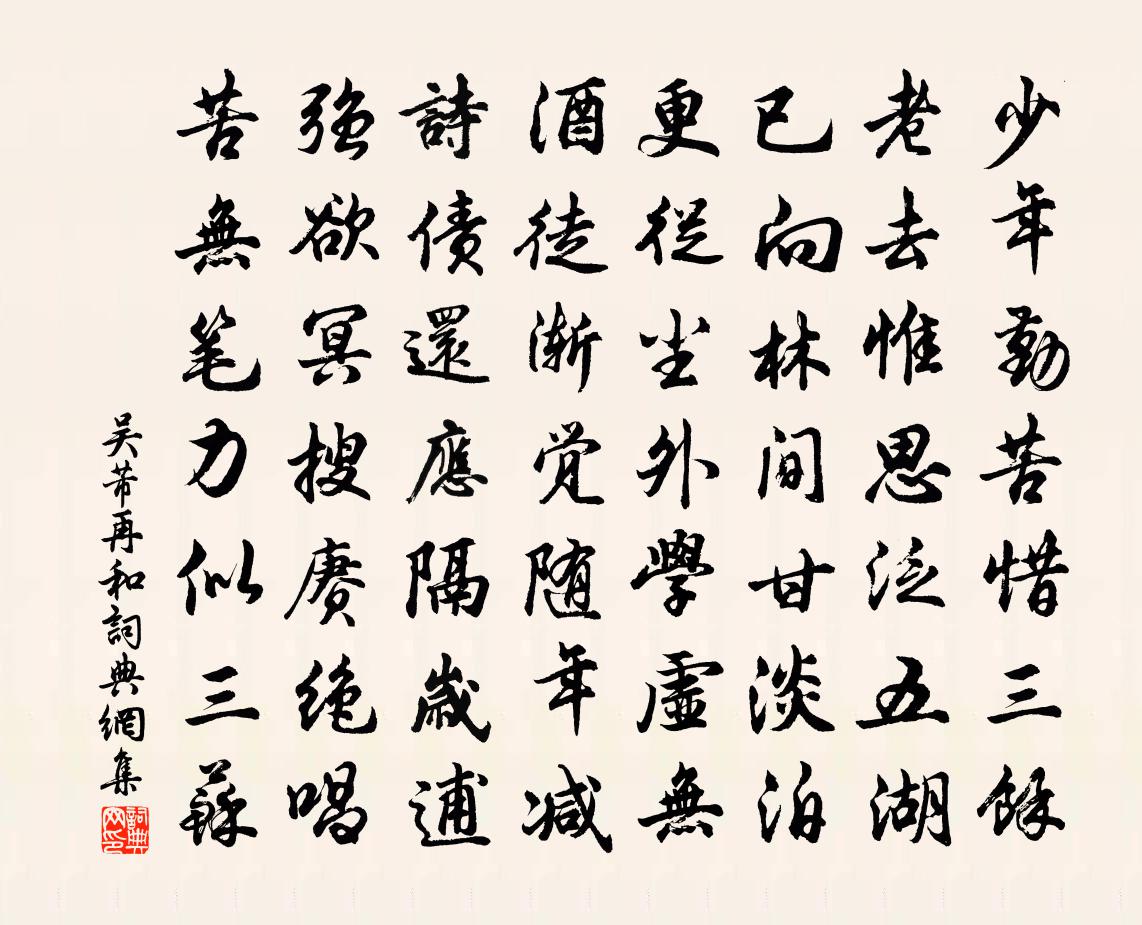 少年勤苦惜三餘
老去惟思泛五湖
已向林間甘淡泊
更從塵外學虛無
酒徒漸覺隨年減
詩債還應隔歲逋
強欲冥搜賡絕唱
苦無笔力似三蘇
吴芾再和詞典網集
詞典网印